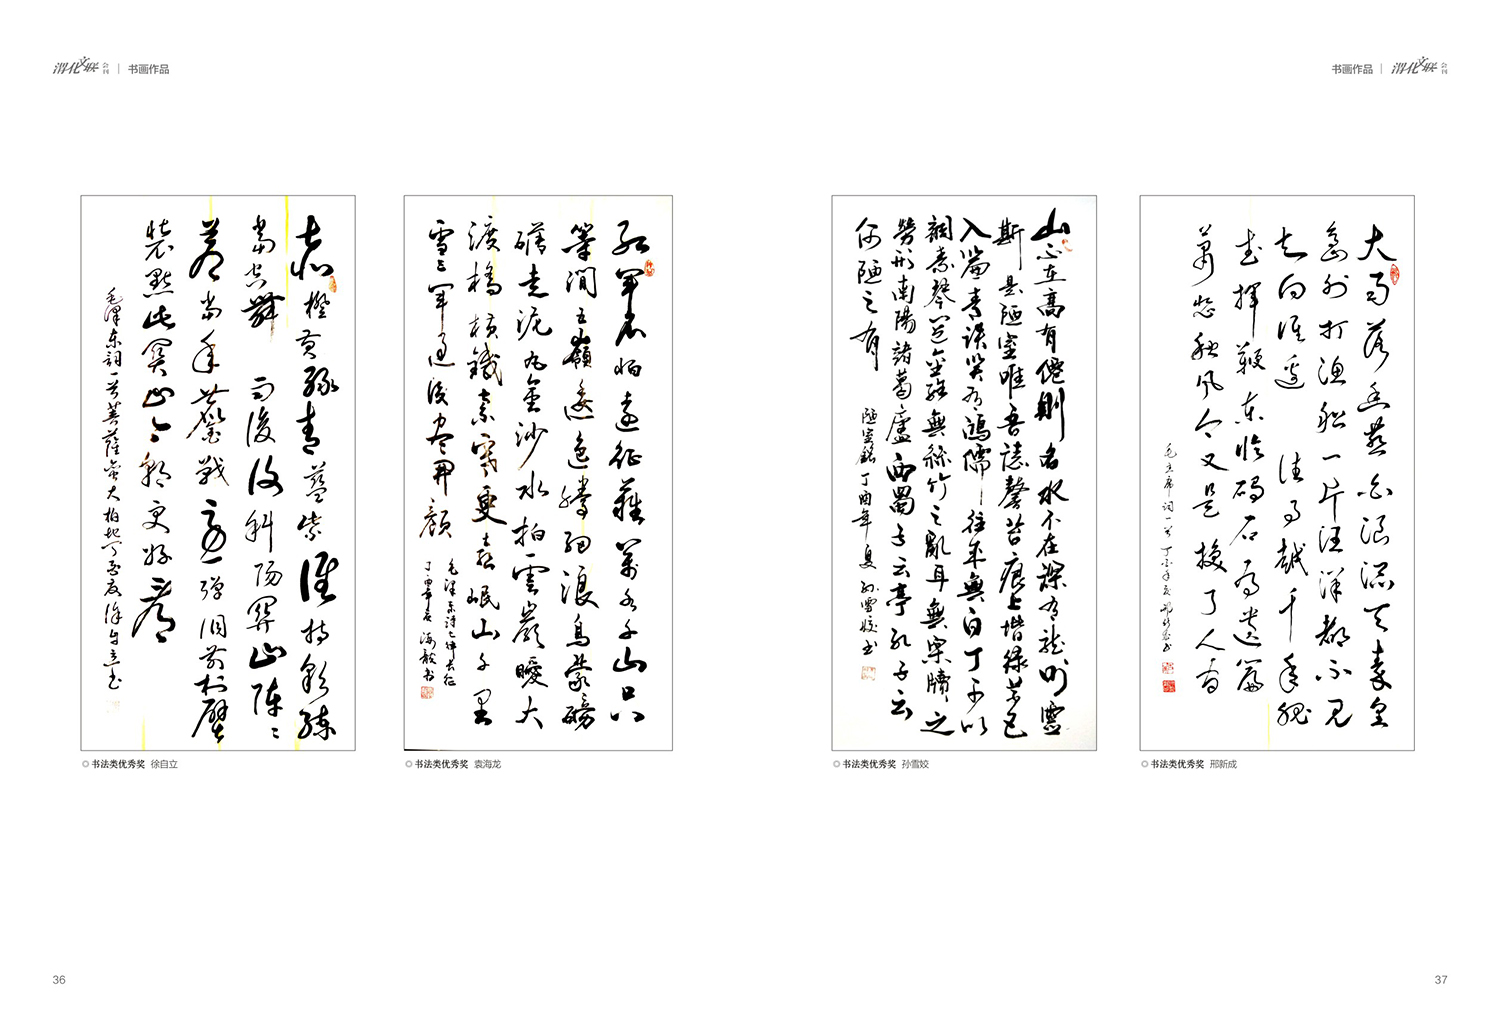 渭化文联 会刊 | 书画作品
赤橙黄绿青蓝紫谁持彩练
當空舞雨後復斜陽關山陣〻
蒼當年鏖戰急彈洞前村壁
裝點此關山今朝更好看
毛澤东詞一首菩薩蛮大柏地丁酉夏徐自立书
◎ 书法类优秀奖 徐自立
紅軍不怕遠征難萬水千山只
等闲五嶺逶迤騰細浪烏蒙磅
礴走泥丸金沙水拍雲崖暖大
渡橋横鐵索寒更喜岷山千里
雪三軍過後尽開顔
毛澤东诗七律长征
丁酉年夏海龙书
◎ 书法类优秀奖 袁海龙
36
书画作品 | 渭化文联 会刊
山不在高有僊則名水不在深有龍則靈
斯是陋室唯吾德馨苔痕上堦綠草色
入簾青談笑有鴻儒往來無白丁可以
調素琴閱金經無絲竹之亂耳無案牘之
勞形南陽諸葛廬西蜀子云亭孔子云
何陋之有
陋室銘丁酉年夏孙雪姣书
◎ 书法类优秀奖 孙雪姣
大雨落幽燕白浪滔天秦皇
島外打漁船一片汪洋都不见
知向谁邊往事越千年魏
武揮鞭东临碣石有遗篇
萧瑟秋风今又是换了人间
毛主席词一首丁酉年夏邢新成书
◎ 书法类优秀奖 邢新成
37